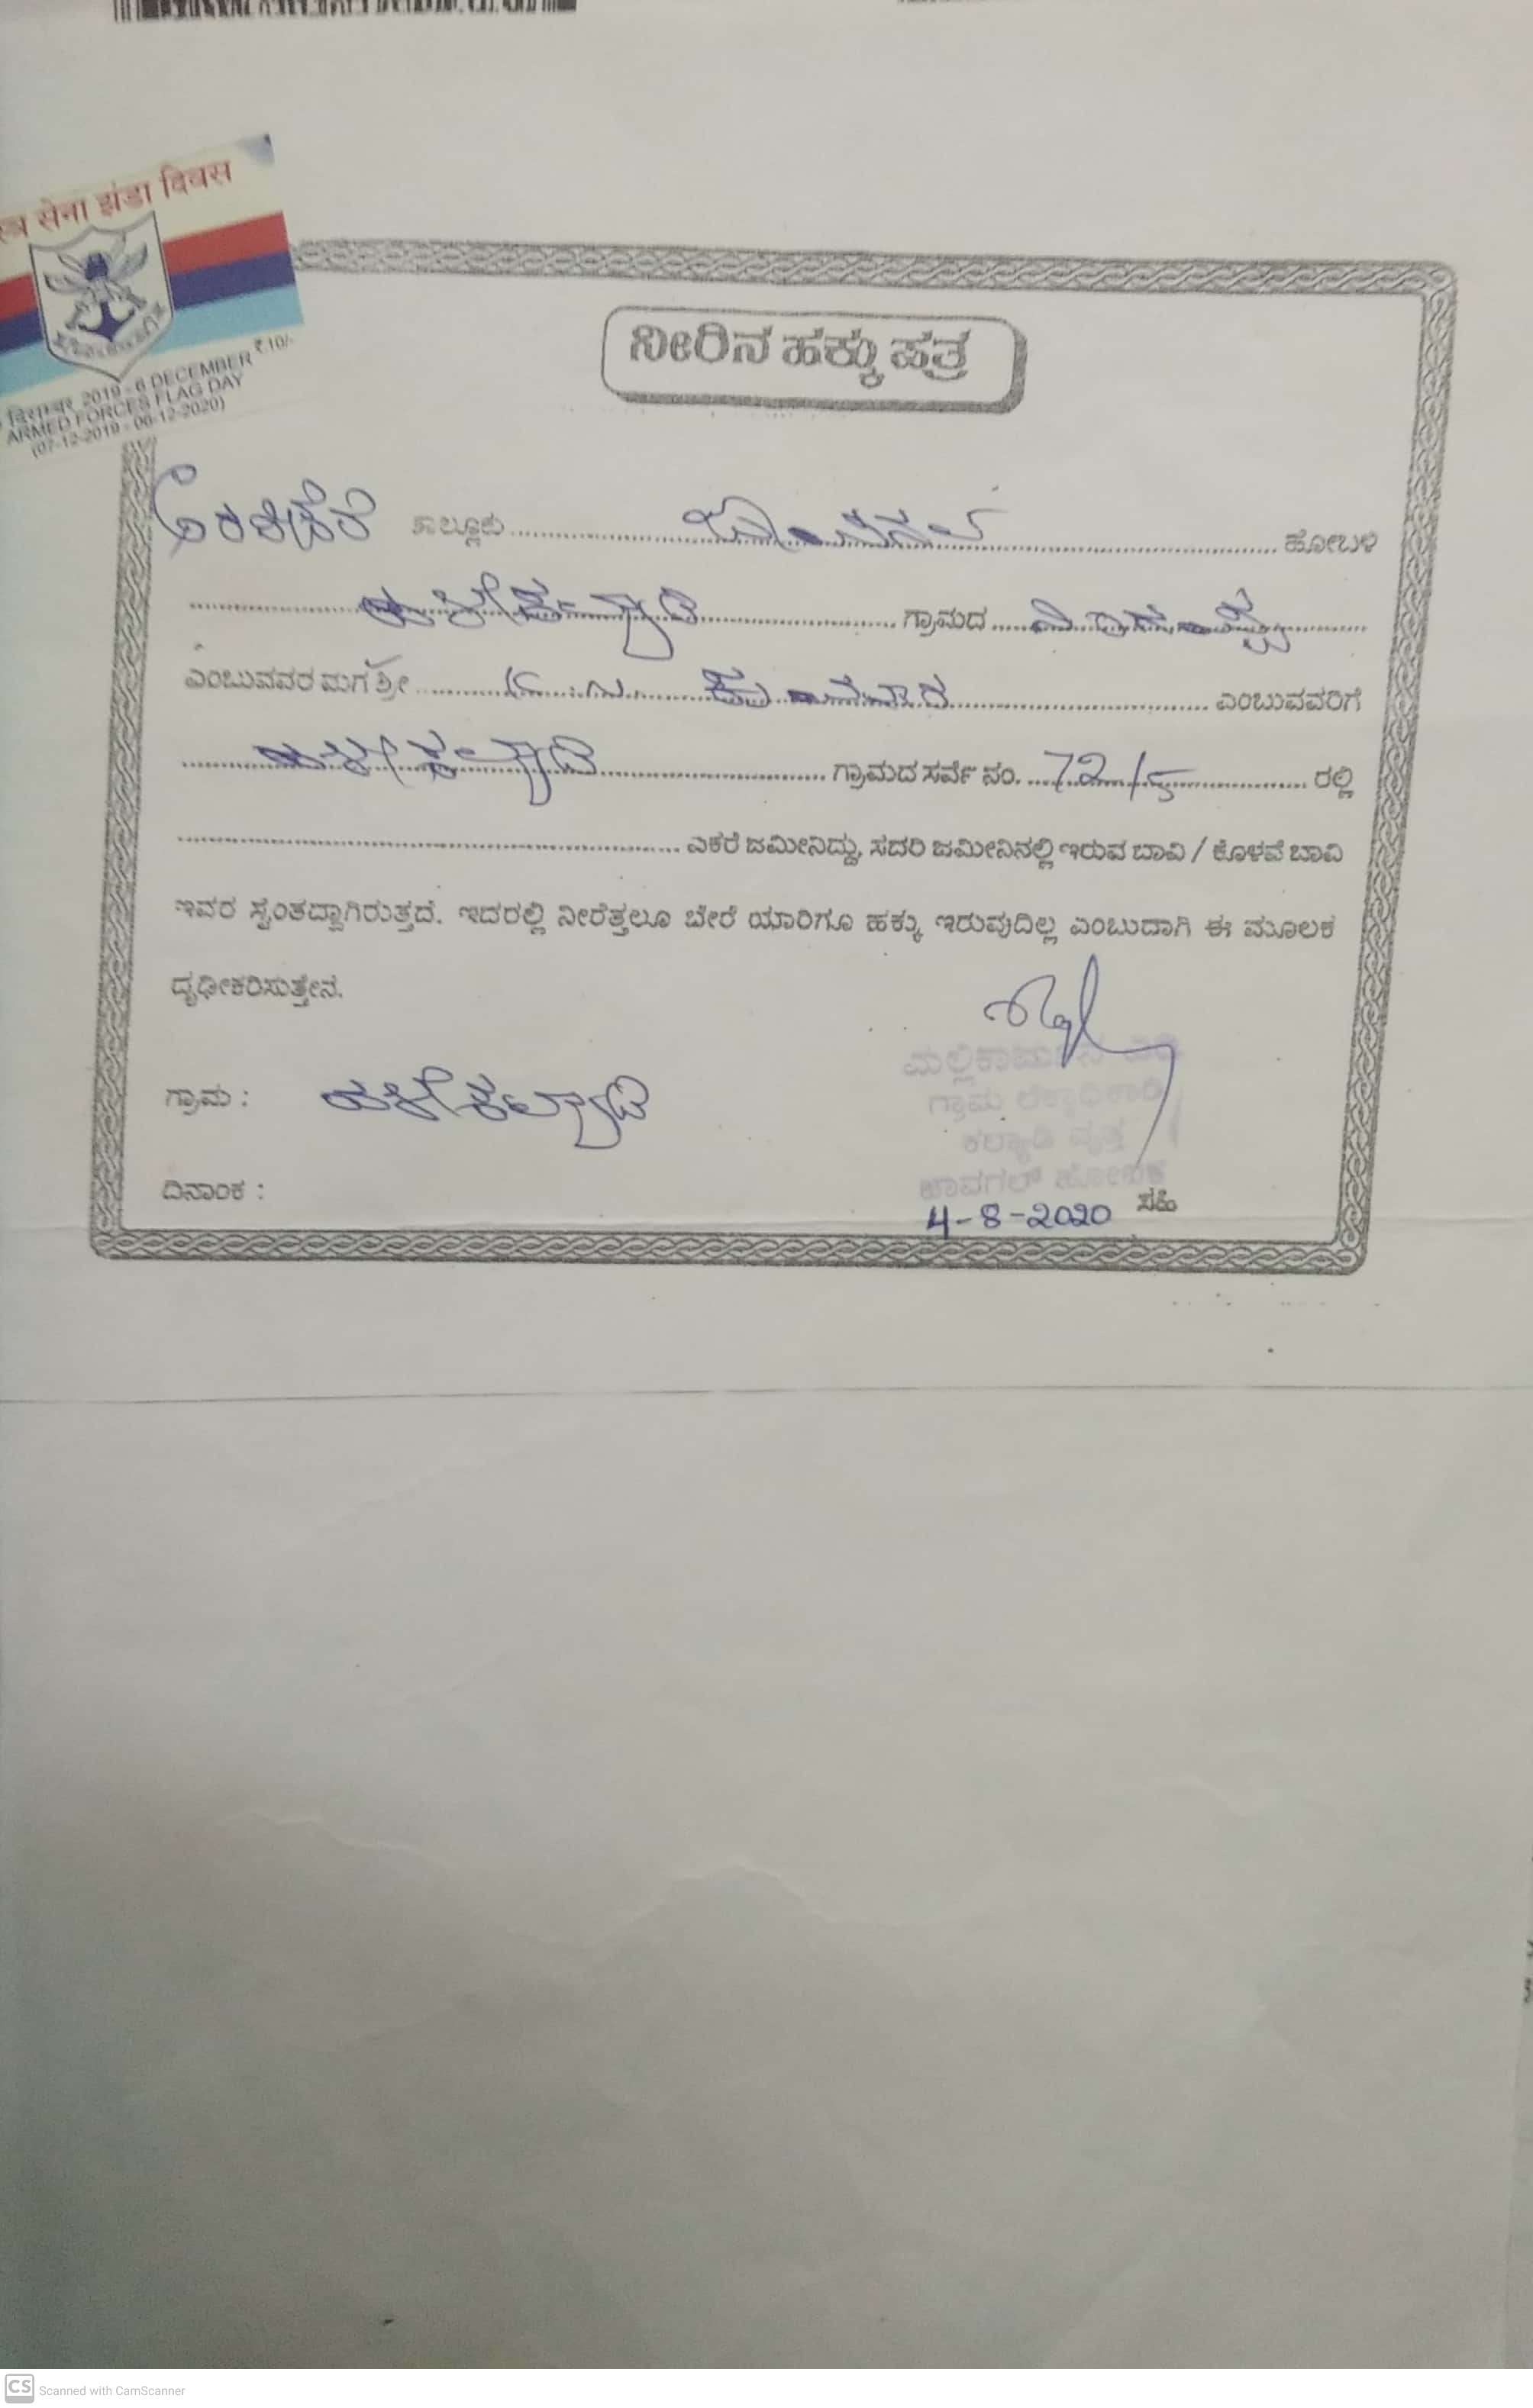 स्त्र सेना झंडा दिवस
₹10/-
दिसम्बर 2019 - 6 DECEMBER
ARMED FORCES FLAG DAY
(07-12-2019 - 06-12-2020)
ನೀರಿನ ಹಕ್ಕು ಪತ್ರ
ಅರಸೀಕೆರೆ ತಾಲ್ಲೂಕು ಜಾವಗಲ್ ಹೋಬಳಿ
ಹಳೇಕಲ್ಯಾಡಿ ಗ್ರಾಮದ
ಎಂಬುವವರ ಮಗ ಶ್ರೀ ಎಂಬುವವರಿಗೆ
ಹಳೇಕಲ್ಯಾಡಿ ಗ್ರಾಮದ ಸರ್ವೆ ನಂ. 72/5 ರಲ್ಲಿ
ಎಕರೆ ಜಮೀನಿದ್ದು, ಸದರಿ ಜಮೀನಿನಲ್ಲಿ ಇರುವ ಬಾವಿ / ಕೊಳವೆ ಬಾವಿ
ಇವರ ಸ್ವಂತದ್ದಾಗಿರುತ್ತದೆ. ಇದರಲ್ಲಿ ನೀರೆತ್ತಲೂ ಬೇರೆ ಯಾರಿಗೂ ಹಕ್ಕು ಇರುವುದಿಲ್ಲ ಎಂಬುದಾಗಿ ಈ ಮೂಲಕ
ದೃಢೀಕರಿಸುತ್ತೇನೆ.
ಮಲ್ಲಿಕಾರ್ಜುನ
ಗ್ರಾಮ ಲೆಕ್ಕಾಧಿಕಾರಿ
ಕಲ್ಯಾಡಿ ವೃತ್ತ
ಜಾವಗಲ್ ಹೋಬಳಿ
ಗ್ರಾಮ : ಹಳೇಕಲ್ಯಾಡಿ
ದಿನಾಂಕ :
4-8-2020 ಸಹಿ
CS Scanned with CamScanner